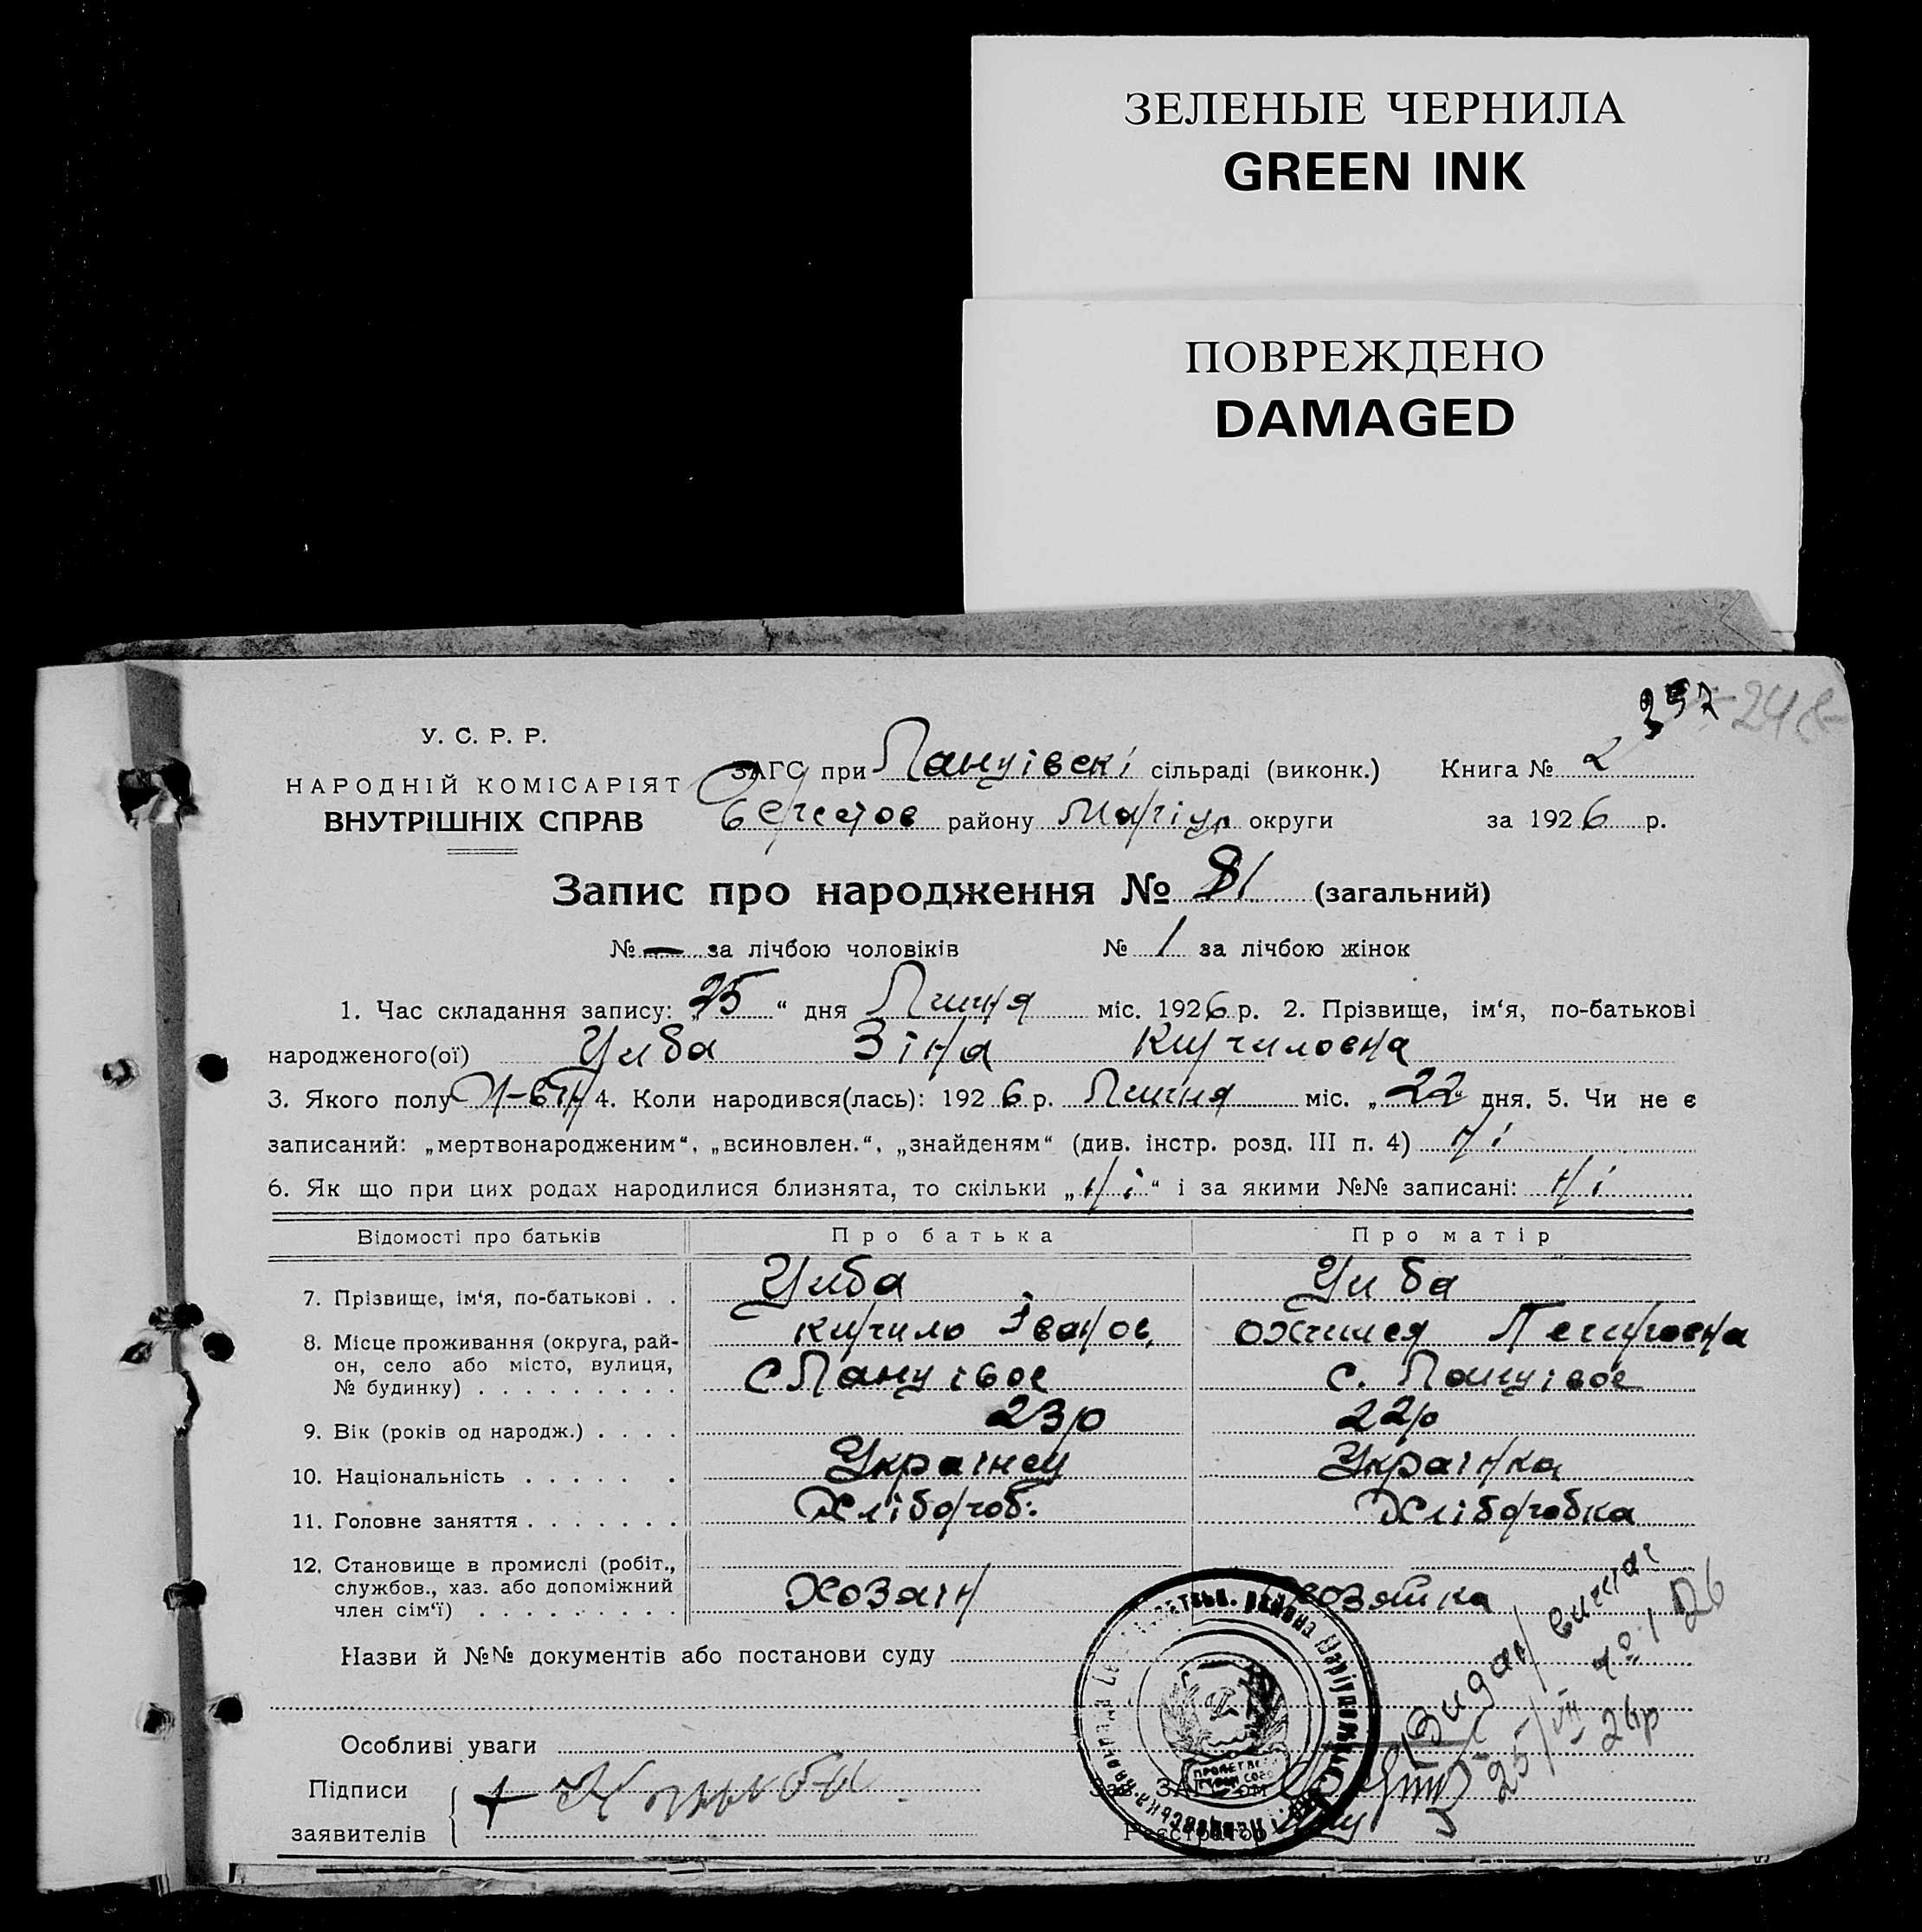 ЗЕЛЕНЫЕ ЧЕРНИЛА
GREEN INK
ПОВРЕЖДЕНО
DAMAGED
У. С. Р. Р.
НАРОДНІЙ КОМІСАРІЯТ
ВНУТРІШНІХ СПРАВ
ЗАГС при сільраді (виконк.) Книга № 2
району Маріуп округи за 1926 р.
Запис про народження № 81 (загальний)
№ — за лічбою чоловіків № 1 за лічбою жінок
1. Час складання запису: „25“ дня Липня міс. 1926 р. 2. Прізвище, ім‘я, по-батькові
народженого(ої) Циба Зіна Кириловна
3. Якого полу 4. Коли народився(лась): 1926 р. Липня міс. „22“ дня. 5. Чи не є
записаний: „мертвонародженим“, „всиновлен.“, „знайденям“ (див. інстр. розд. III п. 4) Ні
6. Як що при цих родах народилися близнята, то скільки „Ні“ і за якими №№ записані: Ні
Відомості про батьків Про батька Про матір
7. Прізвище, ім‘я, по-батькові . . Циба Циба
Кирило Іванов
8. Місце проживання (округа, рай-
он, село або місто, вулиця,
№ будинку) . . . . . . . . . с с.
9. Вік (років од народж.) . . . . 23р 22р
10. Національність . . . . . . Українец Українка
11. Головне заняття . . . . . . . Хлібороб: Хліборобка
12. Становище в промислі (робіт.,
службов., хаз. або допоміжний
член сім‘ї) . . . . . . . . . Хозаін Хозяйка
Назви й №№ документів або постанови суду
Видан
№ 126
25/VII 26р
Особливі уваги
Підписи
заявителів
Зав. ЗАГС'ом
Реєстратор